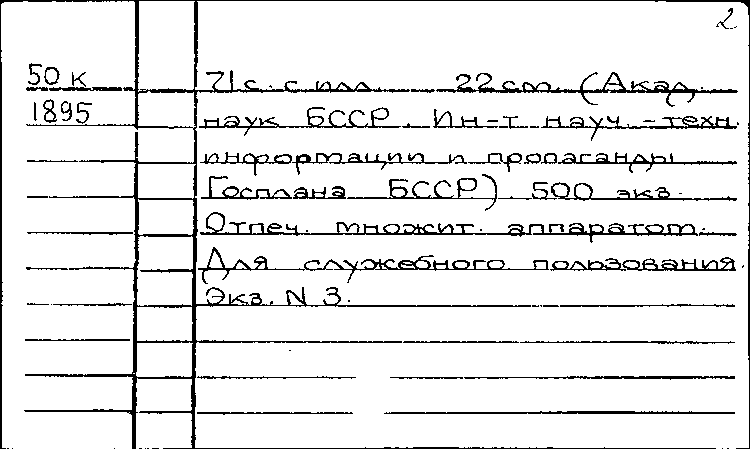 2
50 к
1895
71 с. с илл. 22 см. (Акад.
наук БССР. Ин-т науч.-техн.
информации и пропаганды
Госплана БССР). 500 экз.
Отпеч. множит. аппаратом.
Для служебного пользования.
Экз. N 3.